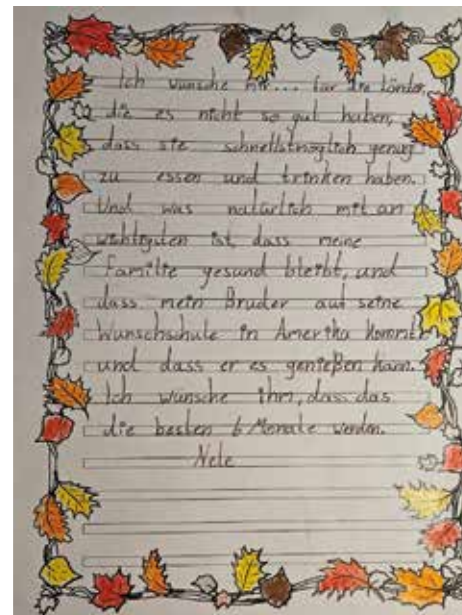 Ich wünsche mir... für die Länder,
die es nicht so gut haben,
dass sie schnellstmöglich genug
zu essen und trinken haben.
Und was natürlich mit am
wichtigsten ist, dass meine
Familie gesund bleibt, und
dass mein Bruder auf seine
Wunschschule in Amerika kommt
und dass er es genießen kann.
Ich wünsche ihm, dass das
die besten 6 Monate werden.
Nele